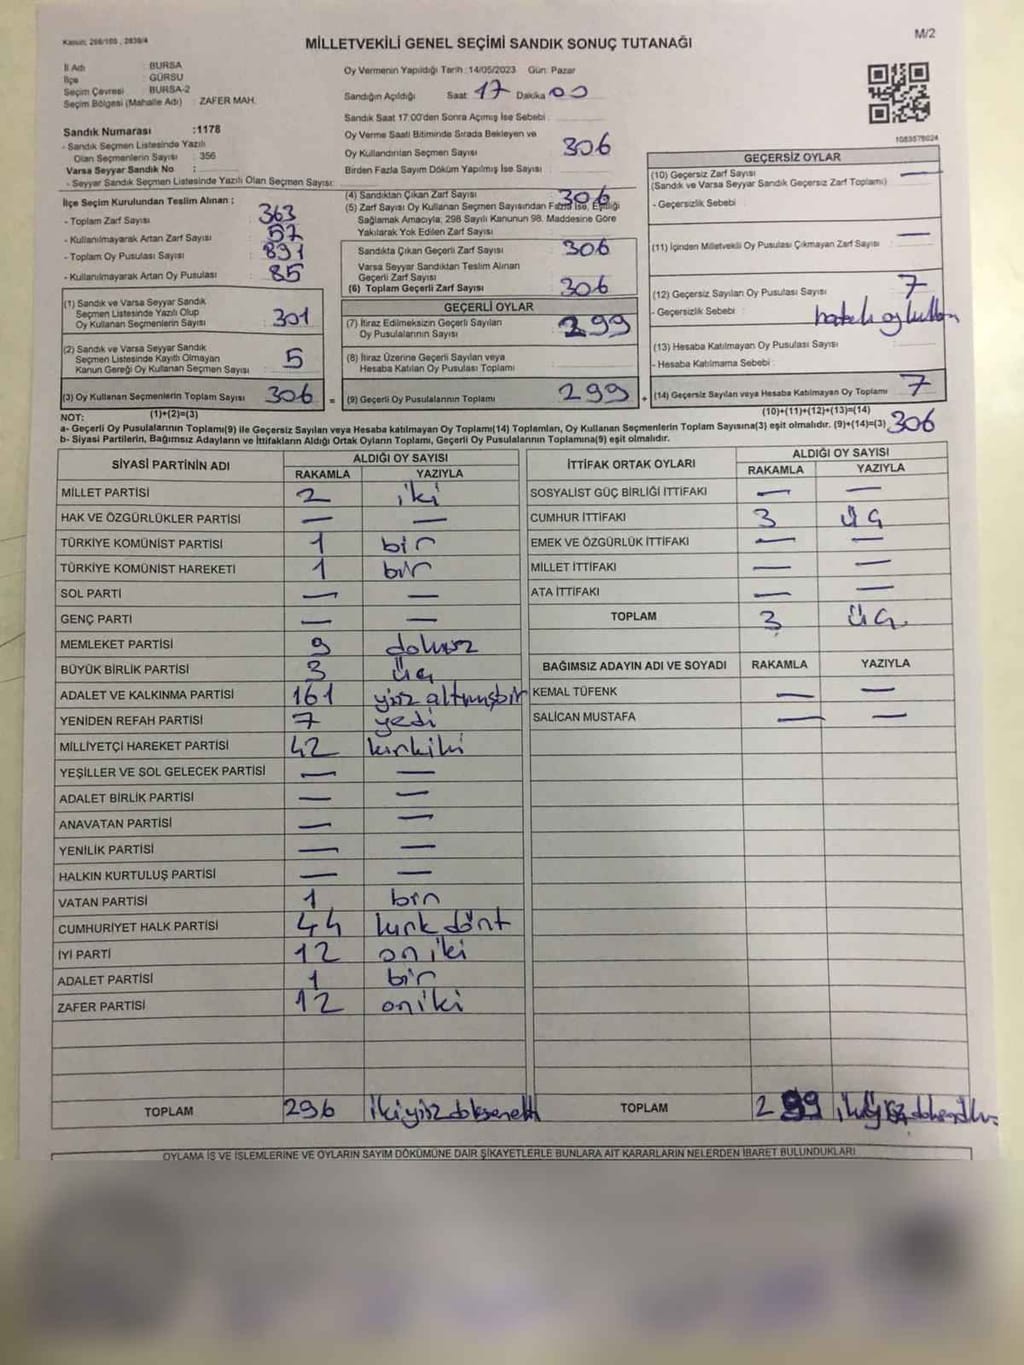 Kanun; 298/105 , 2839/4
MİLLETVEKİLİ GENEL SEÇİMİ SANDIK SONUÇ TUTANAĞI
M/2
İl Adı : BURSA
İlçe : GÜRSU
Seçim Çevresi : BURSA-2
Seçim Bölgesi (Mahalle Adı) : ZAFER MAH.
Sandık Numarası :1178
- Sandık Seçmen Listesinde Yazılı
Olan Seçmenlerin Sayısı : 356
Varsa Seyyar Sandık No :
- Seyyar Sandık Seçmen Listesinde Yazılı Olan Seçmen Sayısı:
Oy Vermenin Yapıldığı Tarih :14/05/2023 Gün: Pazar
Sandığın Açıldığı Saat 17 Dakika 00
Sandık Saat 17:00'den Sonra Açımış İse Sebebi :
Oy Verme Saati Bitiminde Sırada Bekleyen ve
Oy Kullandırılan Seçmen Sayısı 306
Birden Fazla Sayım Döküm Yapılmış İse Sayısı :
1083578024
İlçe Seçim Kurulundan Teslim Alınan ;
- Toplam Zarf Sayısı : 363
- Kullanılmayarak Artan Zarf Sayısı : 57
- Toplam Oy Pusulası Sayısı : 891
- Kullanılmayarak Artan Oy Pusulası : 85
(1) Sandık ve Varsa Seyyar Sandık
Seçmen Listesinde Yazılı Olup
Oy Kullanan Seçmenlerin Sayısı 301
(2) Sandık ve Varsa Seyyar Sandık
Seçmen Listesinde Kayıtlı Olmayan
Kanun Gereği Oy Kullanan Seçmen Sayısı 5
(3) Oy Kullanan Seçmenlerin Toplam Sayısı 306 =
(1)+(2)=(3)
(4) Sandıktan Çıkan Zarf Sayısı 306
(5) Zarf Sayısı Oy Kullanan Seçmen Sayısından Fazla İse, Eşitliği
Sağlamak Amacıyla, 298 Sayılı Kanunun 98. Maddesine Göre
Yakılarak Yok Edilen Zarf Sayısı :
Sandıkta Çıkan Geçerli Zarf Sayısı 306
Varsa Seyyar Sandıktan Teslim Alınan
Geçerli Zarf Sayısı :
(6) Toplam Geçerli Zarf Sayısı : 306
GEÇERLİ OYLAR
(7) İtiraz Edilmeksizin Geçerli Sayılan
Oy Pusulalarının Sayısı : 299
(8) İtiraz Üzerine Geçerli Sayılan veya
Hesaba Katılan Oy Pusulası Toplamı
(9) Geçerli Oy Pusulalarının Toplamı 299 +
GEÇERSİZ OYLAR
(10) Geçersiz Zarf Sayısı —
(Sandık ve Varsa Seyyar Sandık Geçersiz Zarf Toplamı)
- Geçersizlik Sebebi :
(11) İçinden Milletvekili Oy Pusulası Çıkmayan Zarf Sayısı —
(12) Geçersiz Sayılan Oy Pusulası Sayısı 7
- Geçersizlik Sebebi :
(13) Hesaba Katılmayan Oy Pusulası Sayısı :
- Hesaba Katılmama Sebebi :
(14) Geçersiz Sayılan veya Hesaba Katılmayan Oy Toplamı 7
(10)+(11)+(12)+(13)=(14)
NOT:
a- Geçerli Oy Pusulalarının Toplamı(9) ile Geçersiz Sayılan veya Hesaba katılmayan Oy Toplamı(14) Toplamları, Oy Kullanan Seçmenlerin Toplam Sayısına(3) eşit olmalıdır. (9)+(14)=(3) 306
b- Siyasi Partilerin, Bağımsız Adayların ve İttifakların Aldığı Ortak Oyların Toplamı, Geçerli Oy Pusulalarının Toplamına(9) eşit olmalıdır.
SİYASİ PARTİNİN ADI
ALDIĞI OY SAYISI
RAKAMLA YAZIYLA
MİLLET PARTİSİ 2 iki
HAK VE ÖZGÜRLÜKLER PARTİSİ — —
TÜRKİYE KOMÜNİST PARTİSİ 1 bir
TÜRKİYE KOMÜNİST HAREKETİ 1 bir
SOL PARTİ — —
GENÇ PARTİ — —
MEMLEKET PARTİSİ 9 dokuz
BÜYÜK BİRLİK PARTİSİ 3 üç
ADALET VE KALKINMA PARTİSİ 161 yüz altmışbir
YENİDEN REFAH PARTİSİ 7 yedi
MİLLİYETÇİ HAREKET PARTİSİ 42 kırkiki
YEŞİLLER VE SOL GELECEK PARTİSİ — —
ADALET BİRLİK PARTİSİ — —
ANAVATAN PARTİSİ — —
YENİLİK PARTİSİ — —
HALKIN KURTULUŞ PARTİSİ — —
VATAN PARTİSİ 1 bir
CUMHURİYET HALK PARTİSİ 44 kırk dört
İYİ PARTİ 12 on iki
ADALET PARTİSİ 1 bir
ZAFER PARTİSİ 12 oniki
TOPLAM 296 ikiyüzdoksanaltı
İTTİFAK ORTAK OYLARI
ALDIĞI OY SAYISI
RAKAMLA YAZIYLA
SOSYALİST GÜÇ BİRLİĞİ İTTİFAKI — —
CUMHUR İTTİFAKI 3 üç
EMEK VE ÖZGÜRLÜK İTTİFAKI — —
MİLLET İTTİFAKI — —
ATA İTTİFAKI — —
TOPLAM 3 üç
BAĞIMSIZ ADAYIN ADI VE SOYADI RAKAMLA YAZIYLA
KEMAL TÜFENK — —
SALİCAN MUSTAFA — —
TOPLAM 299
OYLAMA İŞ VE İŞLEMLERİNE VE OYLARIN SAYIM DÖKÜMÜNE DAİR ŞİKAYETLERLE BUNLARA AİT KARARLARIN NELERDEN İBARET BULUNDUKLARI